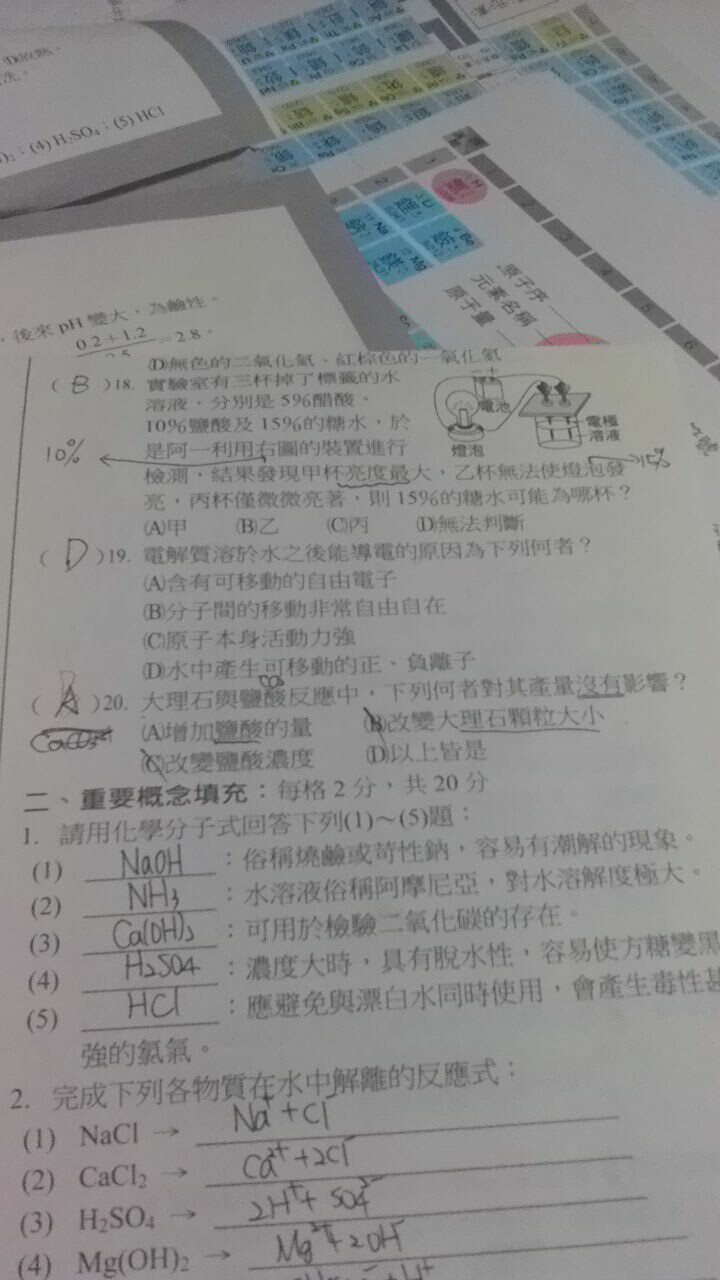 (D)放熱。
洗。
)₂；(4) H₂SO₄；(5) HCl
，後來 pH 變大，為鹼性。
0.2+1.2
=2.8。
(D)無色的二氧化氮、紅棕色的一氧化氮
( B )18. 實驗室有三杯掉了標籤的水
溶液，分別是 5%醋酸、
10%鹽酸及 15%的糖水，於
是阿一利用右圖的裝置進行
檢測，結果發現甲杯亮度最大，乙杯無法使燈泡發
亮，丙杯僅微微亮著，則 15%的糖水可能為哪杯？
(A)甲 (B)乙 (C)丙 (D)無法判斷
10%
15%
電池
燈泡
電極
溶液
( D )19. 電解質溶於水之後能導電的原因為下列何者？
(A)含有可移動的自由電子
(B)分子間的移動非常自由自在
(C)原子本身活動力強
(D)水中產生可移動的正、負離子
( )20. 大理石與鹽酸反應中，下列何者對其產量沒有影響？
(A)增加鹽酸的量 (B)改變大理石顆粒大小
(C)改變鹽酸濃度 (D)以上皆是
二、重要概念填充：每格 2 分，共 20 分
1. 請用化學分子式回答下列(1)～(5)題：
(1) NaOH ：俗稱燒鹼或苛性鈉，容易有潮解的現象。
(2) NH₃ ：水溶液俗稱阿摩尼亞，對水溶解度極大。
(3) Ca(OH)₂ ：可用於檢驗二氧化碳的存在。
(4) H₂SO₄ ：濃度大時，具有脫水性，容易使方糖變黑
(5) HCl ：應避免與漂白水同時使用，會產生毒性甚
強的氯氣。
2. 完成下列各物質在水中解離的反應式：
(1) NaCl → Na⁺ + Cl⁻
(2) CaCl₂ → Ca²⁺ + 2Cl⁻
(3) H₂SO₄ → 2H⁺ + SO₄²⁻
(4) Mg(OH)₂ → Mg²⁺ + 2OH⁻
原子序
元素名稱
原子量
1 2 3 4 5 6
1 H 氫
3 Li 鋰
4 Be 鈹
11 Na 鈉
12 Mg 鎂